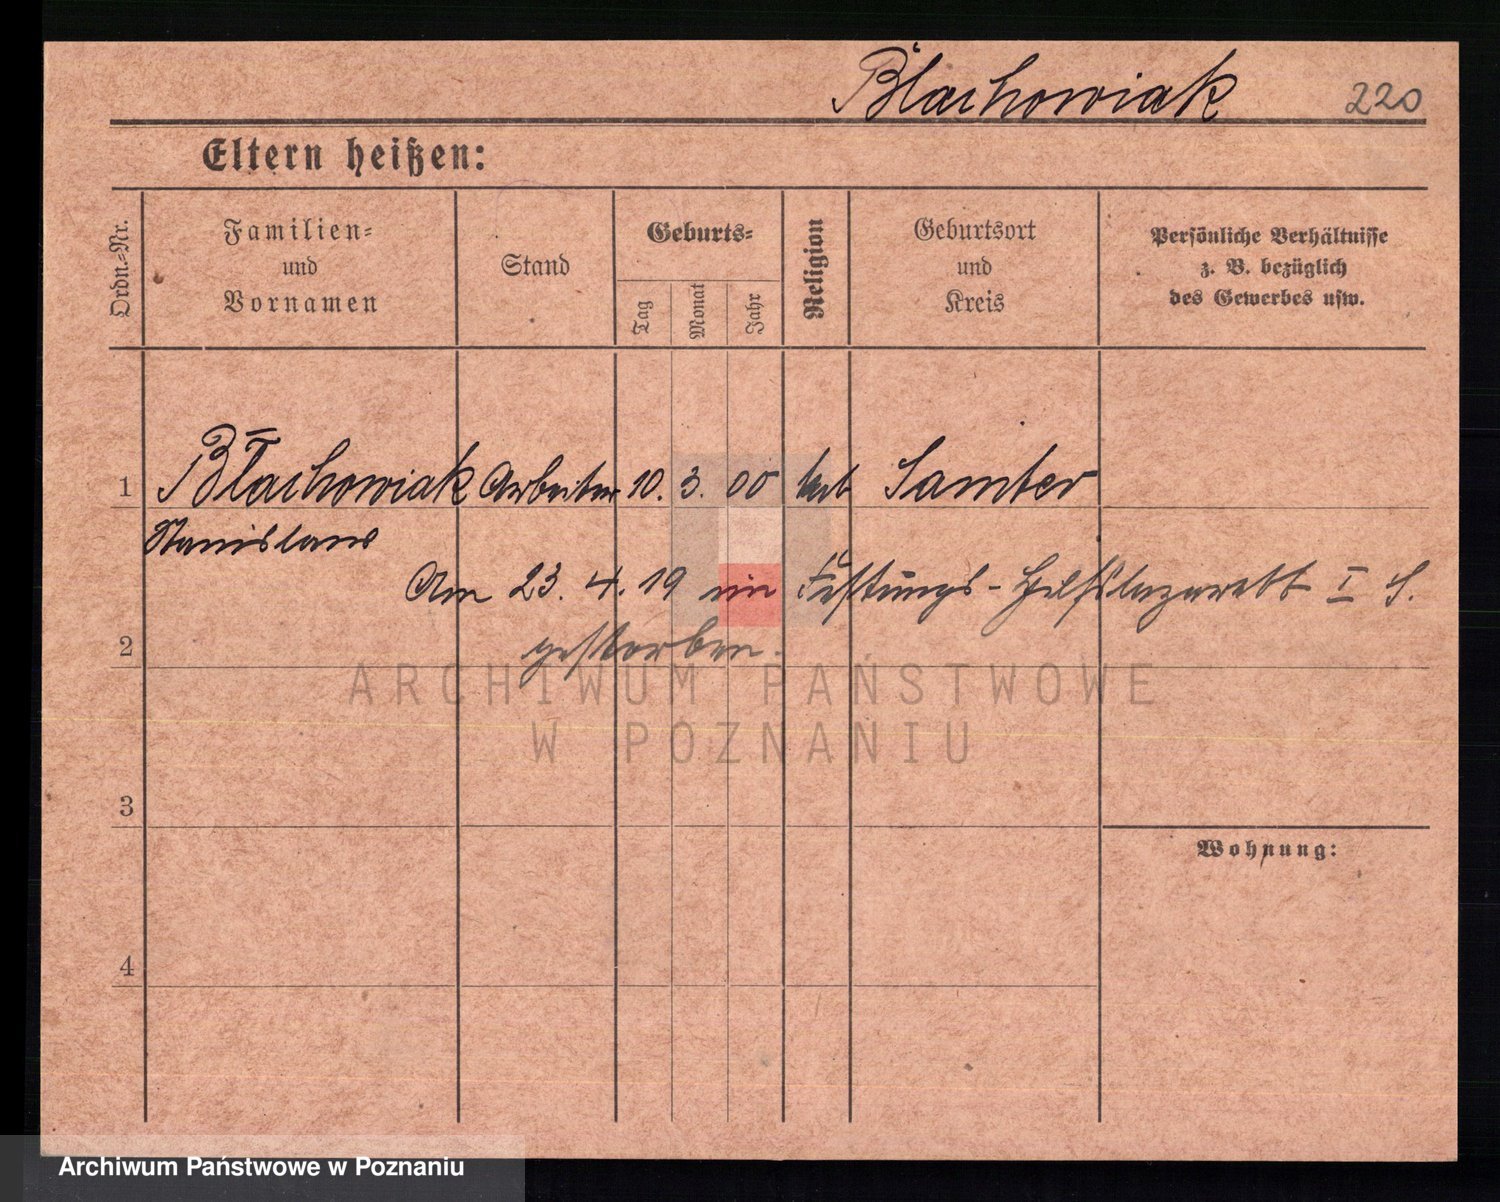 Błachowiak 220
Eltern heißen:
Ordn.-Nr.
Familien-
und
Vornamen
Stand
Geburts-
Tag
Monat
Jahr
Religion
Geburtsort
und
Kreis
Persönliche Verhältnisse
z. B. bezüglich
des Gewerbes usw.
1 Błachowiak Arbeiter 10. 3. 00 kat. Samter
Stanislaus
Am 23. 4. 19 im Festungs-Hilfslazarett I S.
2 gestorben.
ARCHIWUM PAŃSTWOWE
W POZNANIU
3
Wohnung:
4
Archiwum Państwowe w Poznaniu